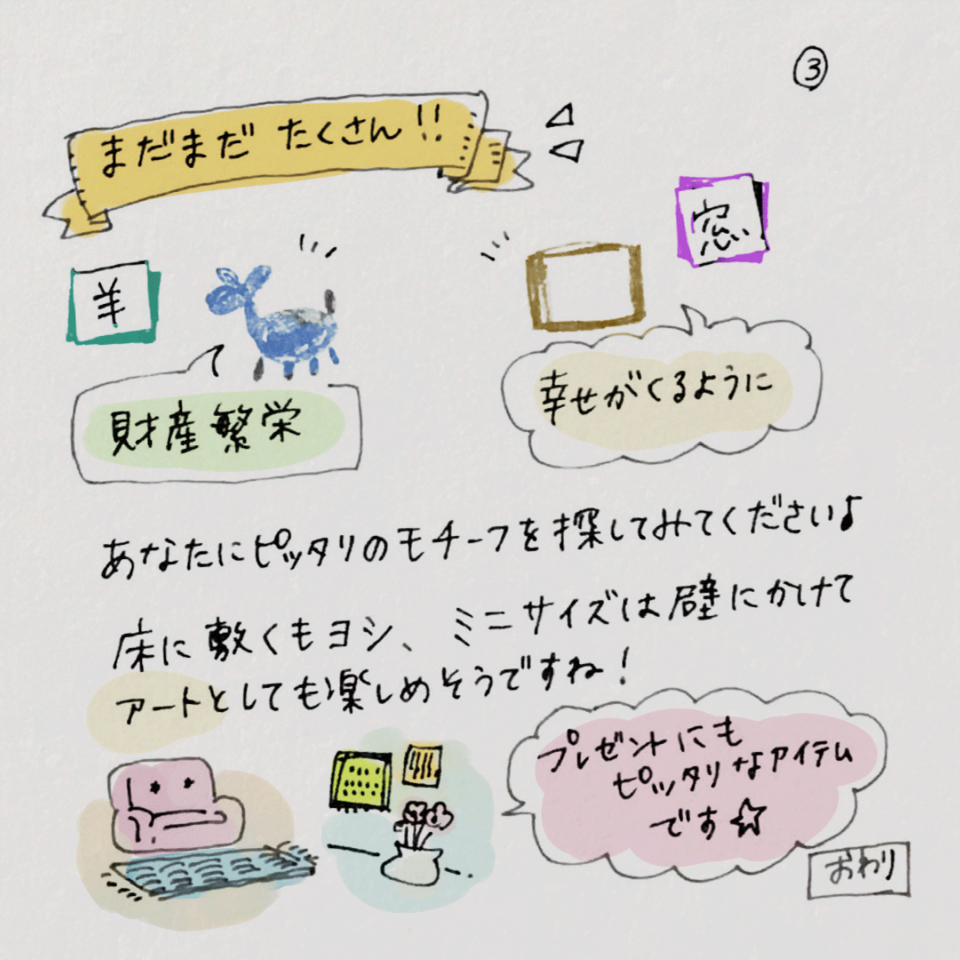 ③
まだまだ たくさん!!
羊
窓
財産繁栄
幸せがくるように
あなたにピッタリのモチーフを探してみてください♪
床に敷くもヨシ、ミニサイズは壁にかけて
アートとしても楽しめそうですね!
プレゼントにも
ピッタリなアイテム
です☆
おわり